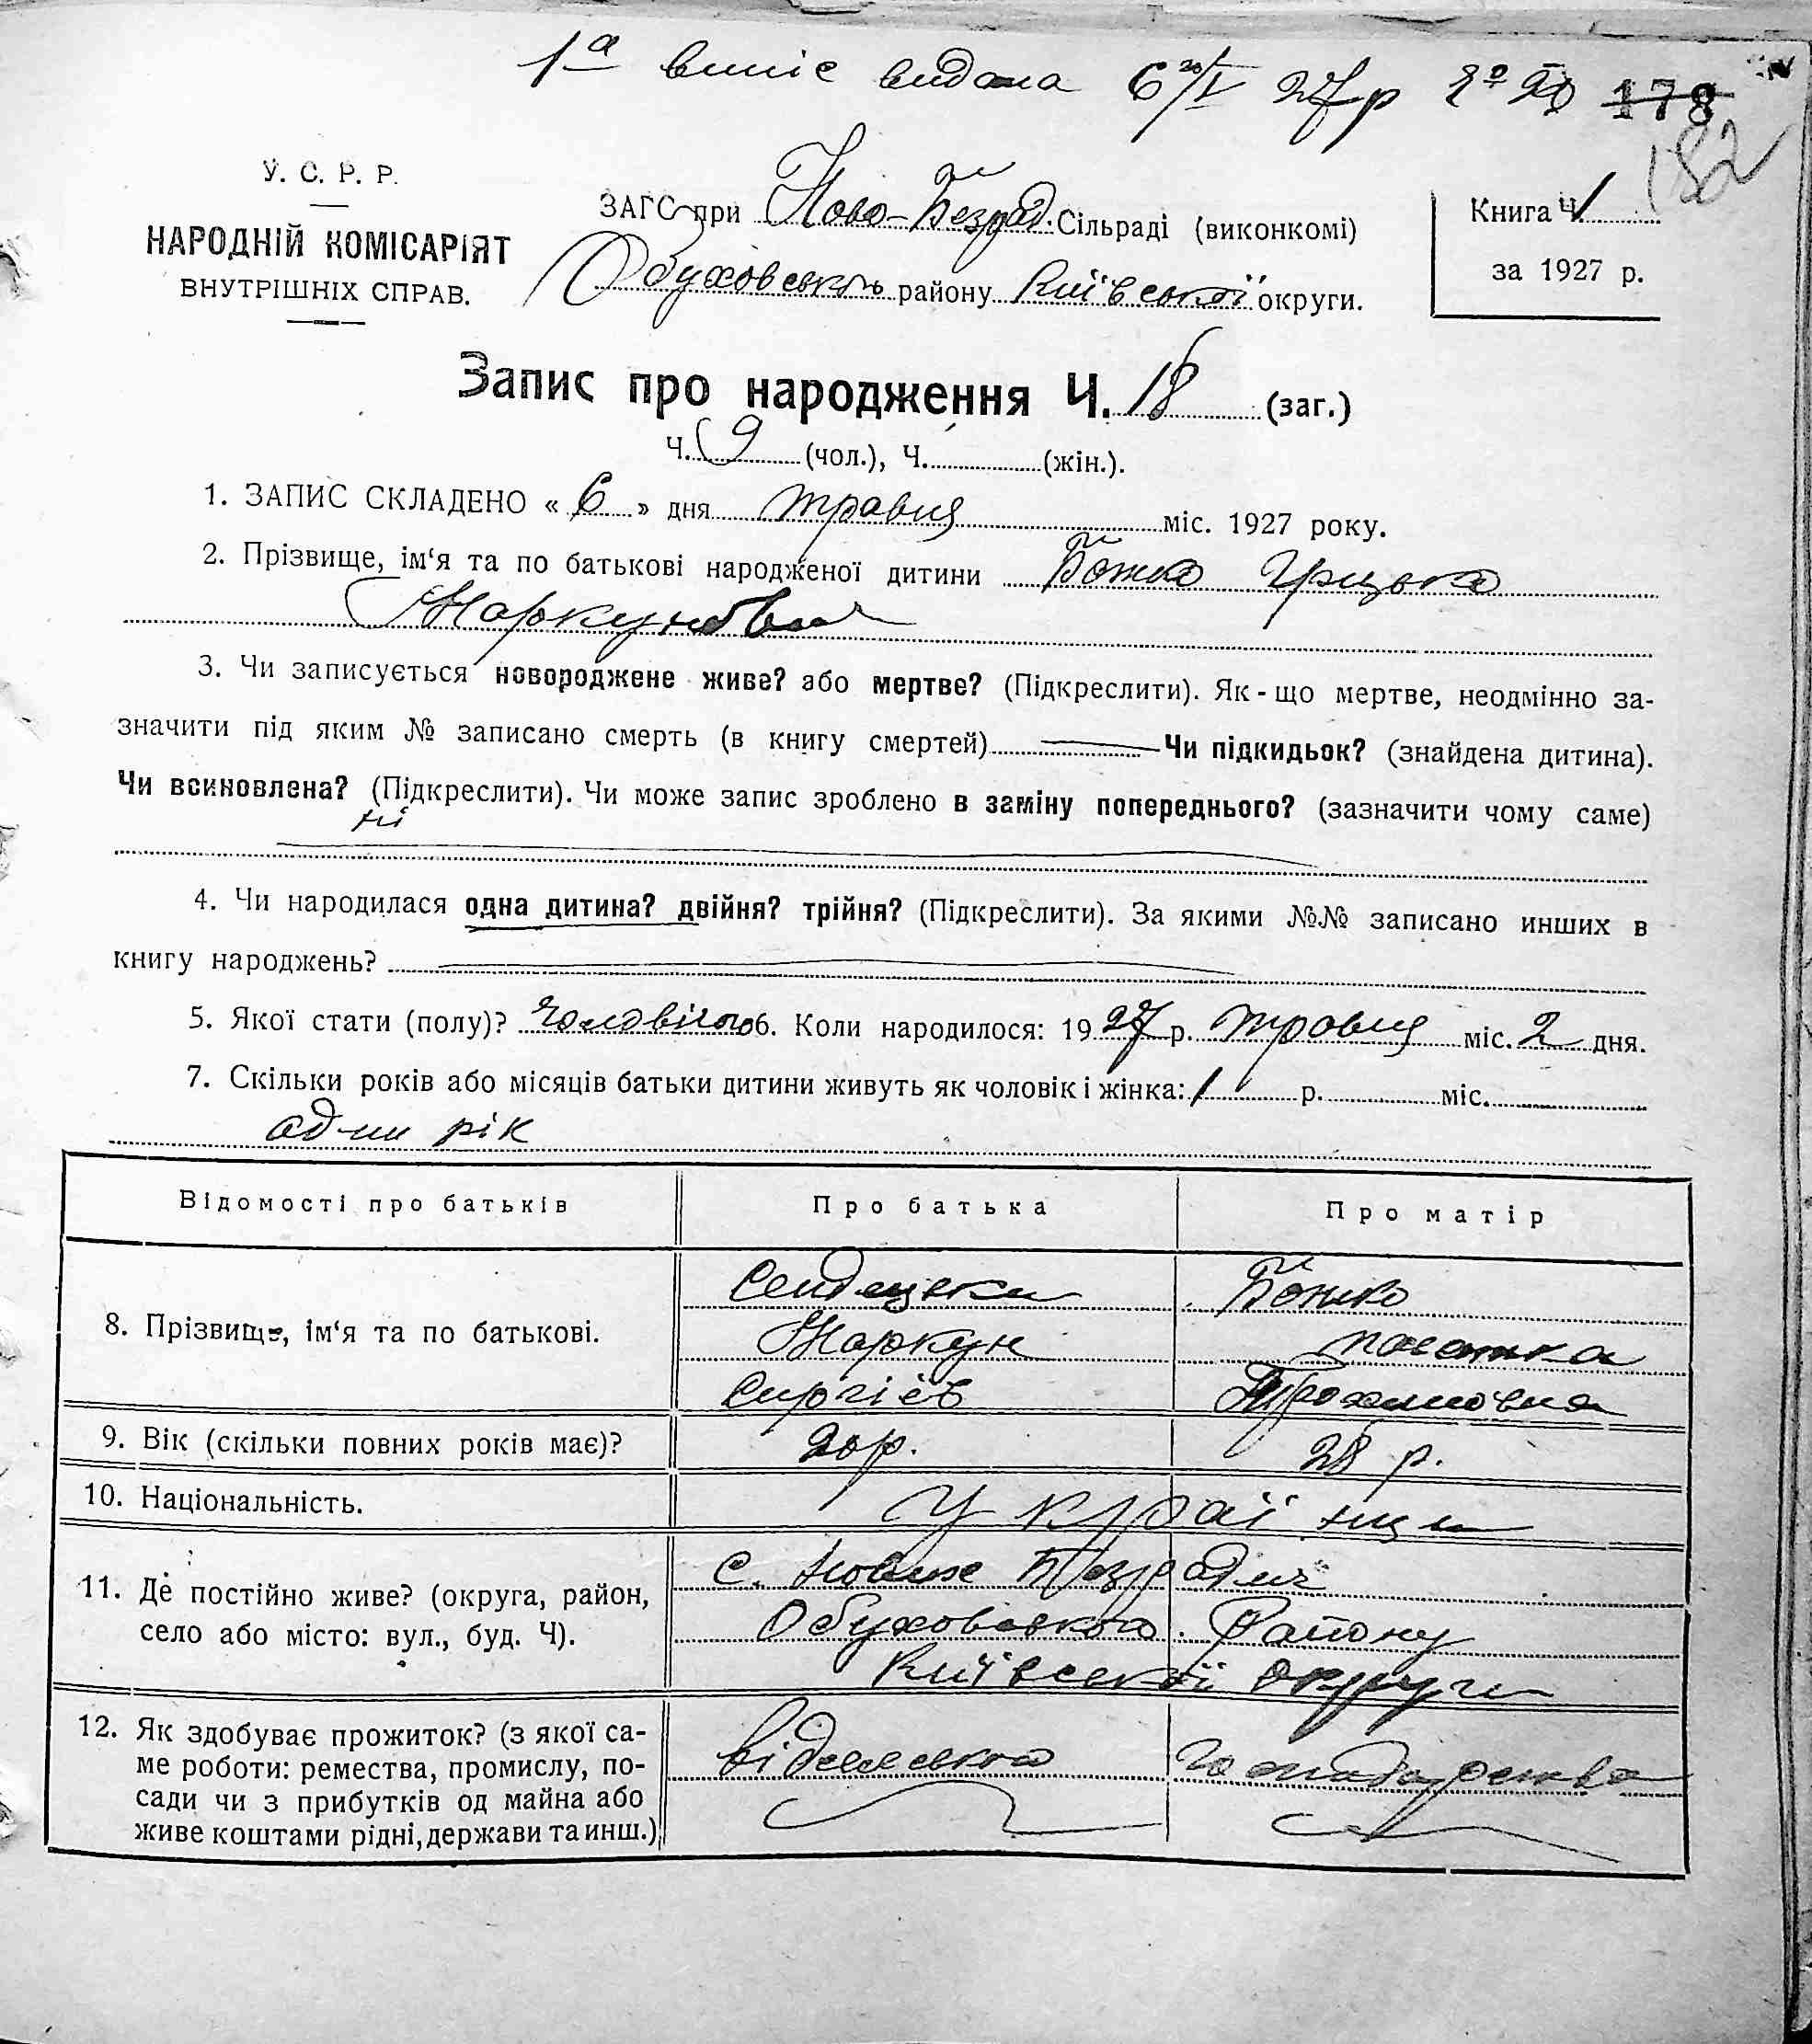 1а випіс видана 6го/V 27р 178
182
У. С. Р. Р.
НАРОДНІЙ КОМІСАРІЯТ
ВНУТРІШНІХ СПРАВ.
ЗАГС при Ново-Безрад. Сільраді (виконкомі)
Обуховського району Київської округи.
Книга Ч. 1
за 1927 р.
Запис про народження Ч. 18 (заг.)
Ч. 9 (чол.), Ч. (жін.).
1. ЗАПИС СКЛАДЕНО « 6 » дня травня міс. 1927 року.
2. Прізвище, ім‘я та по батькові народженої дитини Божко Грицько
Маркунович
3. Чи записується новороджене живе? або мертве? (Підкреслити). Як-що мертве, неодмінно за-
значити під яким № записано смерть (в книгу смертей) Чи підкидьок? (знайдена дитина).
Чи всиновлена? (Підкреслити). Чи може запис зроблено в заміну попереднього? (зазначити чому саме)
ні
4. Чи народилася одна дитина? двійня? трійня? (Підкреслити). За якими №№ записано инших в
книгу народжень?
5. Якої стати (полу)? чоловічого 6. Коли народилося: 1927 р. травня міс. 2 дня.
7. Скільки років або місяців батьки дитини живуть як чоловік і жінка: 1 р. міс.
один рік
Відомості про батьків Про батька Про матір
8. Прізвище, ім‘я та по батькові.
Божко
Маркун
Сиргієв Трохимовна
9. Вік (скільки повних років має)? 20р. 28 р.
10. Національність. Українци
11. Де постійно живе? (округа, район,
село або місто: вул., буд. Ч).
с. Нових Безрадич
Обуховського Району
Київської округи
12. Як здобуває прожиток? (з якої са-
ме роботи: ремества, промислу, по-
сади чи з прибутків од майна або
живе коштами рідні, держави та инш.)
господарства